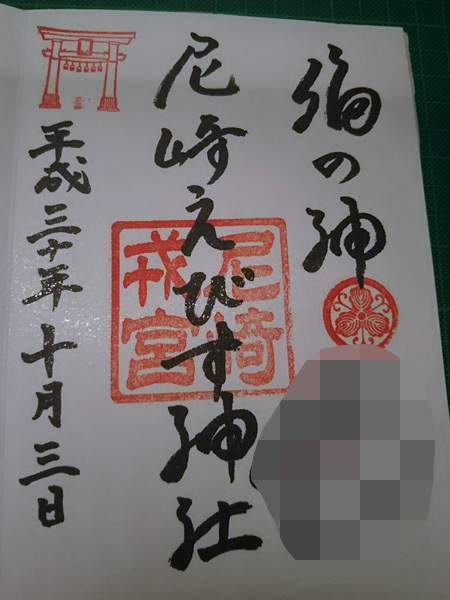 福の神
尼崎えびす神社
尼崎
戎宮
平成三十年十月三日